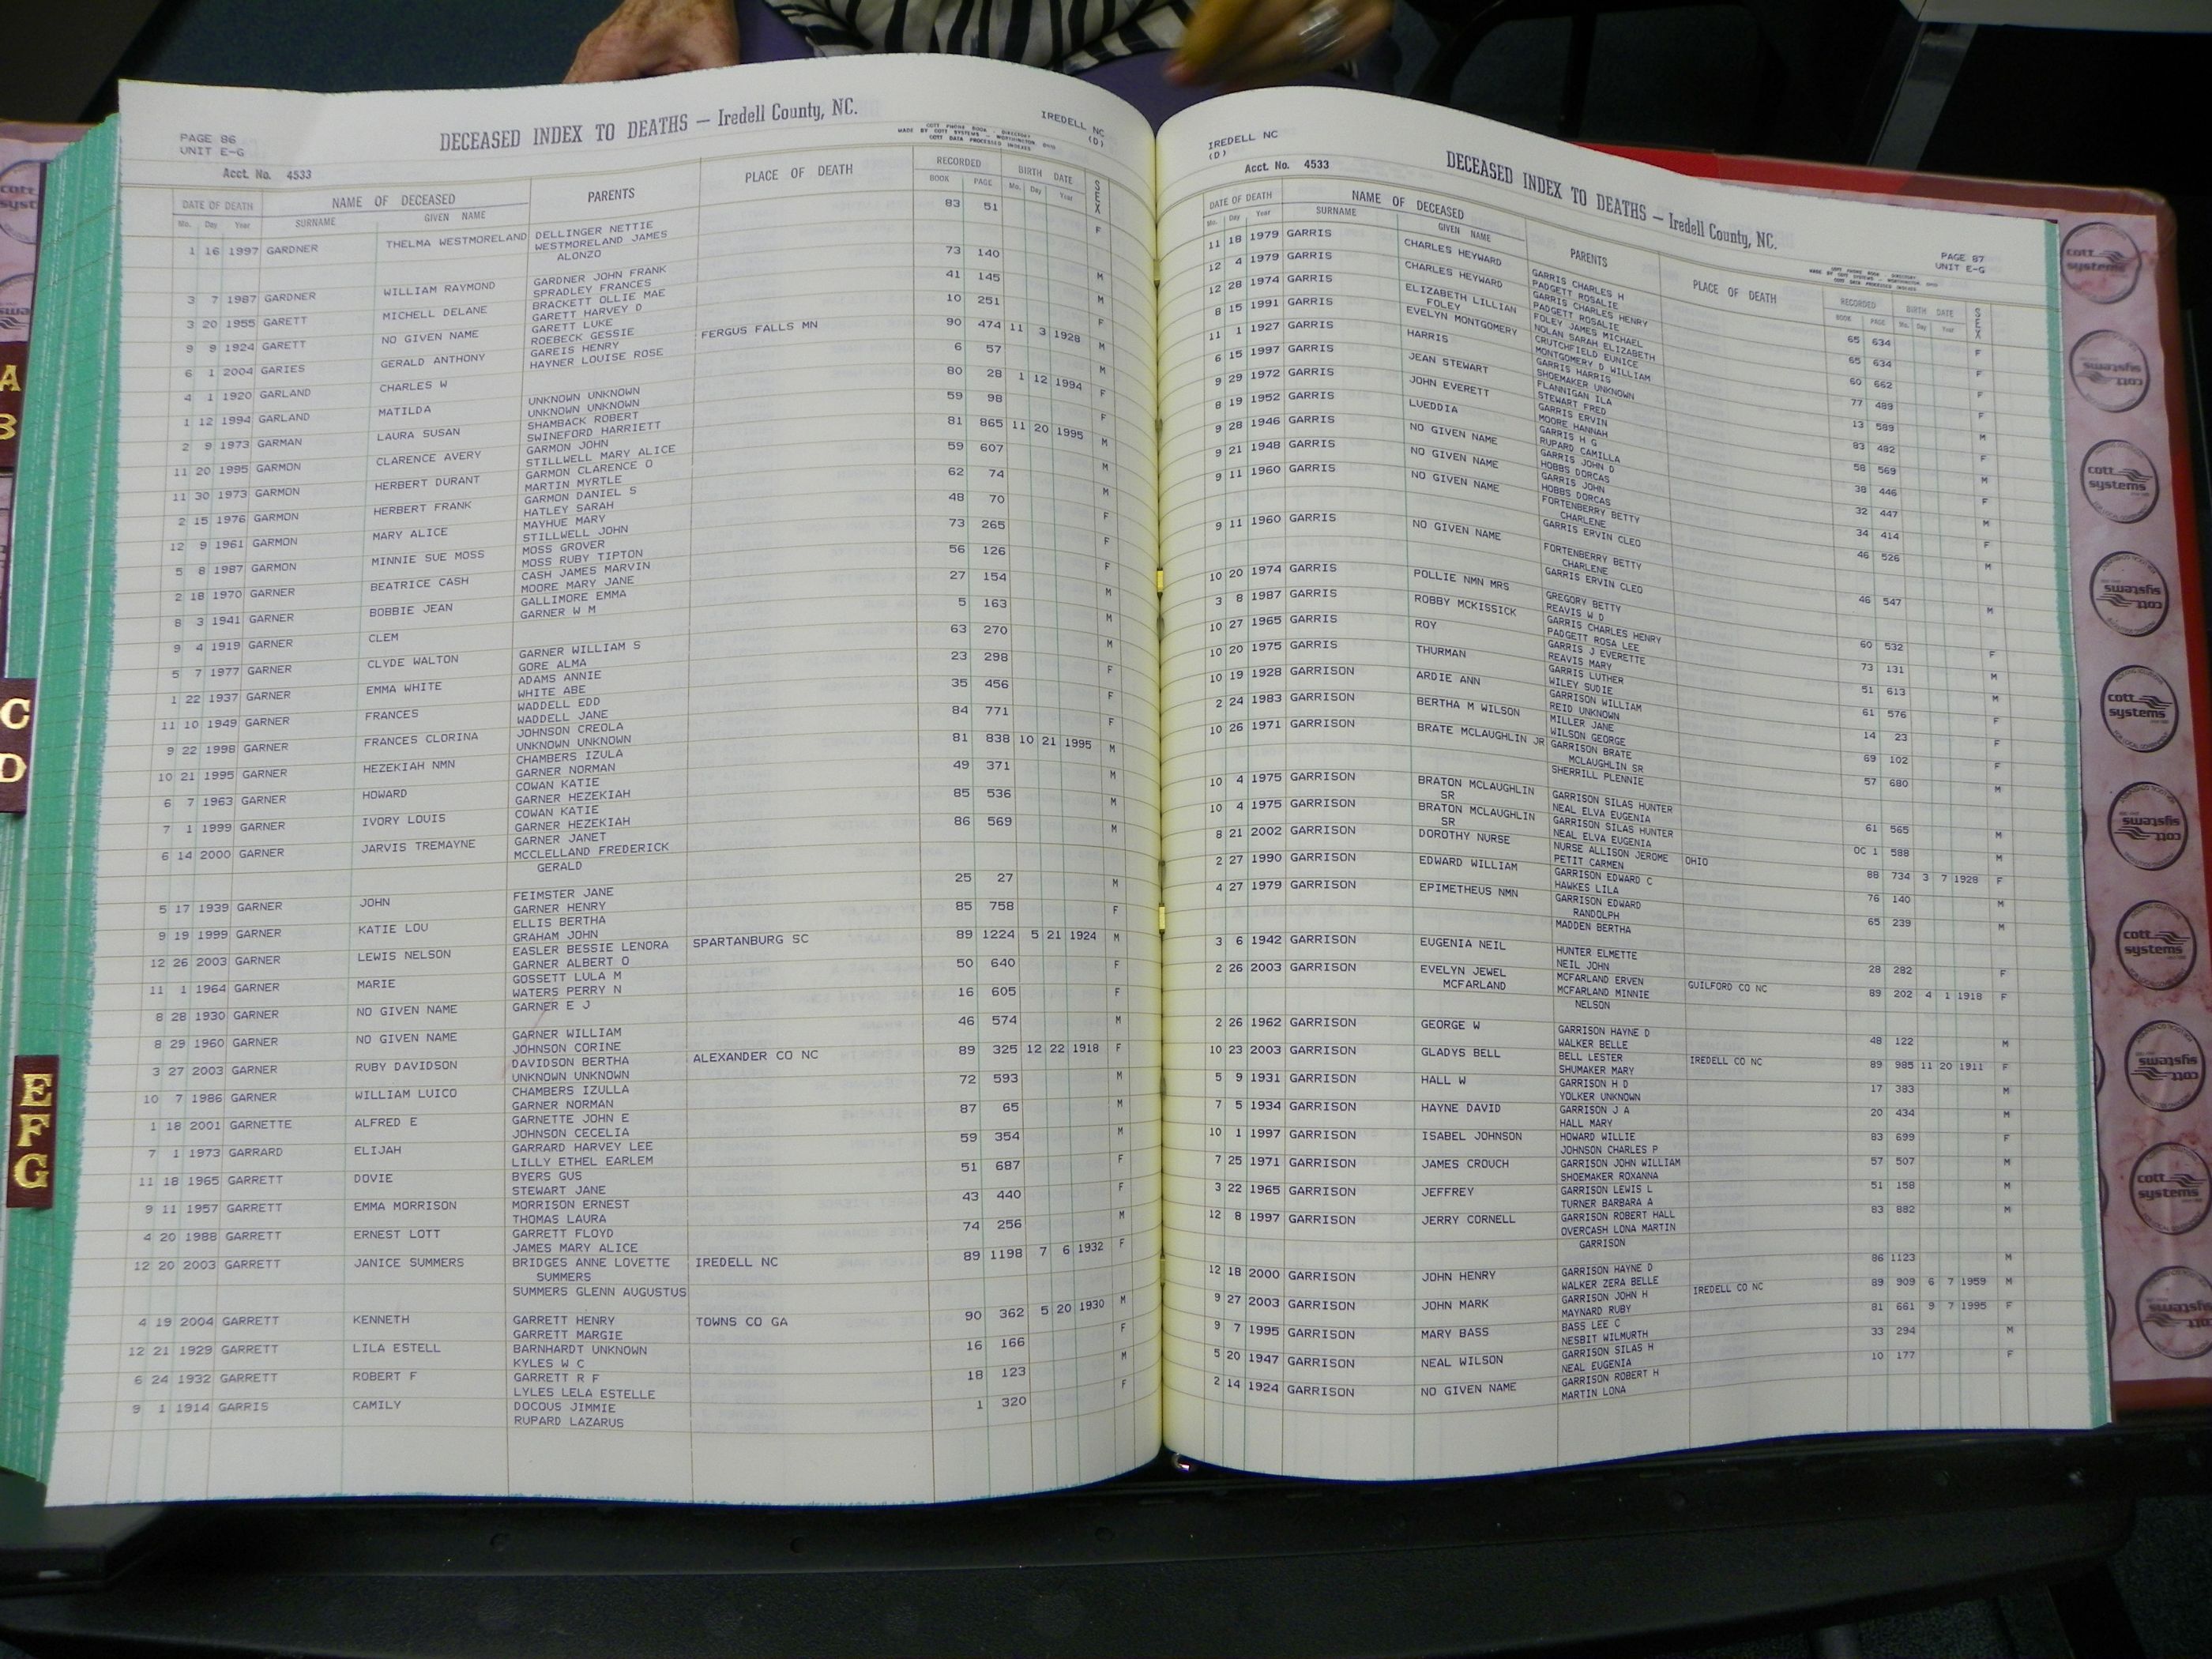 PAGE 86
UNIT E-G
DECEASED INDEX TO DEATHS — Iredell County, NC.
COTT PHONE BOOK - DIRECTORY
MADE BY COTT SYSTEMS - WORTHINGTON, OHIO
COTT DATA PROCESSED INDEXES
IREDELL NC
(D)
Acct. No. 4533
DATE OF DEATH NAME OF DECEASED PARENTS PLACE OF DEATH RECORDED BIRTH DATE SEX
Mo. Day Year SURNAME GIVEN NAME BOOK PAGE Mo. Day Year
1 16 1997 GARDNER THELMA WESTMORELAND DELLINGER NETTIE 83 51 F
WESTMORELAND JAMES
ALONZO
3 7 1987 GARDNER WILLIAM RAYMOND GARDNER JOHN FRANK 73 140 M
SPRADLEY FRANCES
3 20 1955 GARETT MICHELL DELANE BRACKETT OLLIE MAE 41 145 M
GARETT HARVEY D
9 9 1924 GARETT NO GIVEN NAME GARETT LUKE 10 251 F
ROEBECK GESSIE
6 1 2004 GARIES GERALD ANTHONY GAREIS HENRY FERGUS FALLS MN 90 474 11 3 1928 M
HAYNER LOUISE ROSE
4 1 1920 GARLAND CHARLES W 6 57 M
1 12 1994 GARLAND MATILDA UNKNOWN UNKNOWN 80 28 1 12 1994 F
UNKNOWN UNKNOWN
2 9 1973 GARMAN LAURA SUSAN SHAMBACK ROBERT 59 98 F
SWINEFORD HARRIETT
11 20 1995 GARMON CLARENCE AVERY GARMON JOHN 81 865 11 20 1995 M
STILLWELL MARY ALICE
11 30 1973 GARMON HERBERT DURANT GARMON CLARENCE O 59 607 M
MARTIN MYRTLE
2 15 1976 GARMON HERBERT FRANK GARMON DANIEL S 62 74 M
HATLEY SARAH
12 9 1961 GARMON MARY ALICE MAYHUE MARY 48 70 F
STILLWELL JOHN
5 8 1987 GARMON MINNIE SUE MOSS MOSS GROVER 73 265 F
MOSS RUBY TIPTON
2 18 1970 GARNER BEATRICE CASH CASH JAMES MARVIN 56 126 F
MOORE MARY JANE
8 3 1941 GARNER BOBBIE JEAN GALLIMORE EMMA 27 154 M
GARNER W M
9 4 1919 GARNER CLEM 5 163 M
5 7 1977 GARNER CLYDE WALTON GARNER WILLIAM S 63 270 M
GORE ALMA
1 22 1937 GARNER EMMA WHITE ADAMS ANNIE 23 298 F
WHITE ABE
11 10 1949 GARNER FRANCES WADDELL EDD 35 456 F
WADDELL JANE
9 22 1998 GARNER FRANCES CLORINA JOHNSON CREOLA 84 771 F
UNKNOWN UNKNOWN
10 21 1995 GARNER HEZEKIAH NMN CHAMBERS IZULA 81 838 10 21 1995 M
GARNER NORMAN
6 7 1963 GARNER HOWARD COWAN KATIE 49 371 M
GARNER HEZEKIAH
7 1 1999 GARNER IVORY LOUIS COWAN KATIE 85 536 M
GARNER HEZEKIAH
6 14 2000 GARNER JARVIS TREMAYNE GARNER JANET 86 569 M
MCCLELLAND FREDERICK
GERALD
5 17 1939 GARNER JOHN FEIMSTER JANE 25 27 M
GARNER HENRY
9 19 1999 GARNER KATIE LOU ELLIS BERTHA 85 758 F
GRAHAM JOHN
12 26 2003 GARNER LEWIS NELSON EASLER BESSIE LENORA SPARTANBURG SC 89 1224 5 21 1924 M
GARNER ALBERT O
11 1 1964 GARNER MARIE GOSSETT LULA M 50 640 F
WATERS PERRY N
8 28 1930 GARNER NO GIVEN NAME GARNER E J 16 605 F
8 29 1960 GARNER NO GIVEN NAME GARNER WILLIAM 46 574 M
JOHNSON CORINE
3 27 2003 GARNER RUBY DAVIDSON DAVIDSON BERTHA ALEXANDER CO NC 89 325 12 22 1918 F
UNKNOWN UNKNOWN
10 7 1986 GARNER WILLIAM LUICO CHAMBERS IZULLA 72 593 M
GARNER NORMAN
1 18 2001 GARNETTE ALFRED E GARNETTE JOHN E 87 65 M
JOHNSON CECELIA
7 1 1973 GARRARD ELIJAH GARRARD HARVEY LEE 59 354 M
LILLY ETHEL EARLEM
11 18 1965 GARRETT DOVIE BYERS GUS 51 687 F
STEWART JANE
9 11 1957 GARRETT EMMA MORRISON MORRISON ERNEST 43 440 F
THOMAS LAURA
4 20 1988 GARRETT ERNEST LOTT GARRETT FLOYD 74 256 M
JAMES MARY ALICE
12 20 2003 GARRETT JANICE SUMMERS BRIDGES ANNE LOVETTE IREDELL NC 89 1198 7 6 1932 F
SUMMERS
SUMMERS GLENN AUGUSTUS
4 19 2004 GARRETT KENNETH GARRETT HENRY TOWNS CO GA 90 362 5 20 1930 M
GARRETT MARGIE
12 21 1929 GARRETT LILA ESTELL BARNHARDT UNKNOWN 16 166 F
KYLES W C
6 24 1932 GARRETT ROBERT F GARRETT R F 18 123 M
LYLES LELA ESTELLE
9 1 1914 GARRIS CAMILY DOCOUS JIMMIE 1 320 F
RUPARD LAZARUS
IREDELL NC
(D)
Acct. No. 4533
DECEASED INDEX TO DEATHS — Iredell County, NC.
PAGE 87
UNIT E-G
COTT PHONE BOOK - DIRECTORY
MADE BY COTT SYSTEMS - WORTHINGTON, OHIO
COTT DATA PROCESSED INDEXES
DATE OF DEATH NAME OF DECEASED PARENTS PLACE OF DEATH RECORDED BIRTH DATE SEX
Mo. Day Year SURNAME GIVEN NAME BOOK PAGE Mo. Day Year
11 18 1979 GARRIS CHARLES HEYWARD GARRIS CHARLES H 65 634 F
PADGETT ROSALIE
12 4 1979 GARRIS CHARLES HEYWARD GARRIS CHARLES HENRY 65 634 F
PADGETT ROSALIE
12 28 1974 GARRIS ELIZABETH LILLIAN FOLEY JAMES MICHAEL 60 662 F
FOLEY NOLAN SARAH ELIZABETH
8 15 1991 GARRIS EVELYN MONTGOMERY CRUTCHFIELD EUNICE 77 489 F
MONTGOMERY D WILLIAM
11 1 1927 GARRIS HARRIS GARRIS HARRIS 13 589 M
SHOEMAKER UNKNOWN
6 15 1997 GARRIS JEAN STEWART FLANNIGAN ILA 83 482 F
STEWART FRED
9 29 1972 GARRIS JOHN EVERETT GARRIS ERVIN 58 569 M
MOORE HANNAH
8 19 1952 GARRIS LUEDDIA GARRIS H G 38 446 F
RUPARD CAMILLA
9 28 1946 GARRIS NO GIVEN NAME GARRIS JOHN D 32 447 M
HOBBS DORCAS
9 21 1948 GARRIS NO GIVEN NAME GARRIS JOHN 34 414 F
HOBBS DORCAS
9 11 1960 GARRIS NO GIVEN NAME FORTENBERRY BETTY 46 526 M
CHARLENE
GARRIS ERVIN CLEO
9 11 1960 GARRIS NO GIVEN NAME FORTENBERRY BETTY 46 547 M
CHARLENE
GARRIS ERVIN CLEO
10 20 1974 GARRIS POLLIE NMN MRS GREGORY BETTY 60 532 F
REAVIS W D
3 8 1987 GARRIS ROBBY MCKISSICK GARRIS CHARLES HENRY 73 131 M
PADGETT ROSA LEE
10 27 1965 GARRIS ROY GARRIS J EVERETTE 51 613 M
REAVIS MARY
10 20 1975 GARRIS THURMAN GARRIS LUTHER 61 576 F
WILEY SUDIE
10 19 1928 GARRISON ARDIE ANN GARRISON WILLIAM 14 23 F
REID UNKNOWN
2 24 1983 GARRISON BERTHA M WILSON MILLER JANE 69 102 F
WILSON GEORGE
10 26 1971 GARRISON BRATE MCLAUGHLIN JR GARRISON BRATE 57 680 M
MCLAUGHLIN SR
SHERRILL PLENNIE
10 4 1975 GARRISON BRATON MCLAUGHLIN GARRISON SILAS HUNTER 61 565 M
SR NEAL ELVA EUGENIA
10 4 1975 GARRISON BRATON MCLAUGHLIN GARRISON SILAS HUNTER OC 1 588 M
SR NEAL ELVA EUGENIA
8 21 2002 GARRISON DOROTHY NURSE NURSE ALLISON JEROME OHIO 88 734 3 7 1928 F
PETIT CARMEN
2 27 1990 GARRISON EDWARD WILLIAM GARRISON EDWARD C 76 140 M
HAWKES LILA
4 27 1979 GARRISON EPIMETHEUS NMN GARRISON EDWARD 65 239 M
RANDOLPH
MADDEN BERTHA
3 6 1942 GARRISON EUGENIA NEIL HUNTER ELMETTE 28 282 F
NEIL JOHN
2 26 2003 GARRISON EVELYN JEWEL MCFARLAND ERVEN GUILFORD CO NC 89 202 4 1 1918 F
MCFARLAND MCFARLAND MINNIE
NELSON
2 26 1962 GARRISON GEORGE W GARRISON HAYNE D 48 122 M
WALKER BELLE
10 23 2003 GARRISON GLADYS BELL BELL LESTER IREDELL CO NC 89 985 11 20 1911 F
SHUMAKER MARY
5 9 1931 GARRISON HALL W GARRISON H D 17 383 M
YOLKER UNKNOWN
7 5 1934 GARRISON HAYNE DAVID GARRISON J A 20 434 M
HALL MARY
10 1 1997 GARRISON ISABEL JOHNSON HOWARD WILLIE 83 699 F
JOHNSON CHARLES P
7 25 1971 GARRISON JAMES CROUCH GARRISON JOHN WILLIAM 57 507 M
SHOEMAKER ROXANNA
3 22 1965 GARRISON JEFFREY GARRISON LEWIS L 51 158 M
TURNER BARBARA A
12 8 1997 GARRISON JERRY CORNELL GARRISON ROBERT HALL 83 882 M
OVERCASH LONA MARTIN
GARRISON
12 18 2000 GARRISON JOHN HENRY GARRISON HAYNE D 86 1123 M
WALKER ZERA BELLE
9 27 2003 GARRISON JOHN MARK GARRISON JOHN H IREDELL CO NC 89 909 6 7 1959 M
MAYNARD RUBY
9 7 1995 GARRISON MARY BASS BASS LEE C 81 661 9 7 1995 F
NESBIT WILMURTH
5 20 1947 GARRISON NEAL WILSON GARRISON SILAS H 33 294 M
NEAL EUGENIA
2 14 1924 GARRISON NO GIVEN NAME GARRISON ROBERT H 10 177 F
MARTIN LONA
A
B
C
D
E
F
G
cott
systems
cott
systems
cott
systems
cott
systems
cott
systems
cott
systems
cott
systems
cott
systems
cott
systems
cott
systems